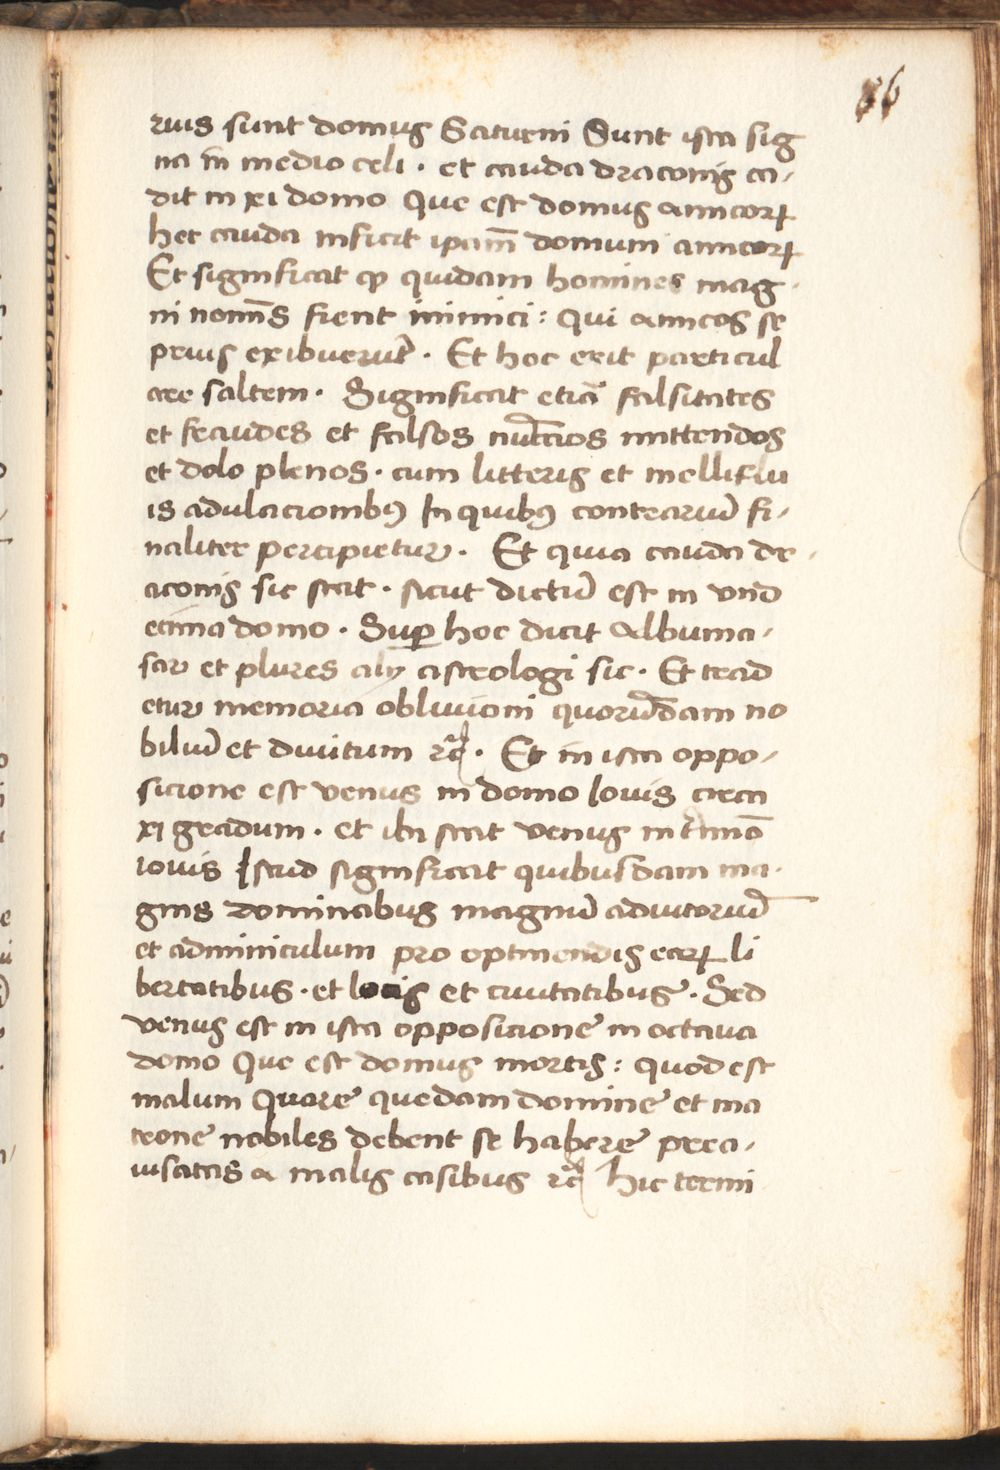 86
rius sunt domus Saturni Sunt ista sig
na in medio celi . et cauda draconis ca-
dit in xi domo Que est domus amicorꝝ
hec cauda inficit ipam̄ domum amicorꝝ
Et significat qͥ quidam homines mag-
ni nomīs fient inimici : qui amicos se
prius exibuerūt . Et hoc erit particul
are saltem . Significat etiā falsitates
et fraudes et falsos nūccios mittendos
et dolo plenos . cum litteris et melliflu
is adulacionibꝰ In quibꝰ contrariū fi-
naliter percipietur . Et quia cauda dr-
aconis sic stat . sicut dictū est in vnd
ecima domo . Suꝑ hoc dicit Albuma-
sar et plures alij astrologi sic . Et trad
etur memoria obliuioni quorūdam no
biliū et diuitum ⁊c̄ . Et in ista oppo-
sicione est venus in domo Iouis circa
xj gradum . et ibi stat venus in t̄mīo
iouis Istud significat quibusdam ma-
gnis dominabus magnū adiutoriū
et adminiculum pro optinendis earꝝ li
bertatibus . et locis et ciuitatibus . Sed
venus est in ista opposicione in octaua
domo Que est domus mortis : quod est
malum Quare quedam domine et ma
trone nobiles debent se habere preca-
uisatas a malis casibus ⁊c̄ Hic termi